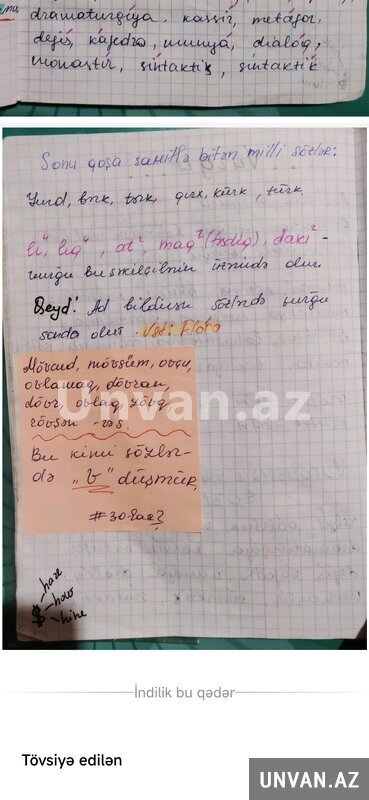 dramaturgiya, kassir, metafor,
deşis, kafedra, munya, dialoq,
monastır, sintaktik, sintaktik
Sonu qoşa samitlə bitən milli sözlər:
Yurd, börk, tərk, qırx, kürk, türk.
lı⁴, lıq⁴, at², maq² (fədiq), dakı² -
vurğu bu şəkilçilərin üzərində olur.
Qeyd! Ad bildirən sözlərdə vurğu
sonda olur.
Mövcud, mövsüm, ovçu,
ovlamaq, dövran,
dövr, ovlaq, zövq
rövşən -və s.
Bu kimi sözlər-
də "v" düşmür
#30-
have
how
hire
Unvan.az
İndilik bu qədər
Tövsiyə edilən
UNVAN.AZ